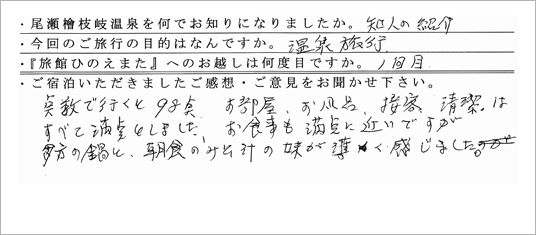 ・尾瀬檜枝岐温泉を何でお知りになりましたか。知人の紹介
・今回のご旅行の目的はなんですか。温泉旅行
・『旅館ひのえまた』へのお越しは何度目ですか。1回目
・ご宿泊いただきましたご感想・ご意見をお聞かせ下さい。
点数で行くと98点 お部屋、お風呂、接客、清潔は
すべて満点としました。お食事も満点に近いですが
夕方の鍋と、朝食のみそ汁の味が薄く感じました。